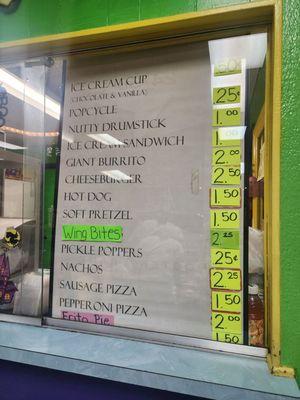 ICE CREAM CUP .50¢
(CHOCOLATE & VANILLA)
POPCYCLE .25¢
NUTTY DRUMSTICK 1.00
ICE CREAM SANDWICH 1.00
GIANT BURRITO 2.00
CHEESEBURGER 2.50
HOT DOG 1.50
SOFT PRETZEL 1.50
Wing Bites 2.25
PICKLE POPPERS .25¢
NACHOS 2.25
SAUSAGE PIZZA 1.50
PEPPERONI PIZZA 2.00
Frito Pie 1.50